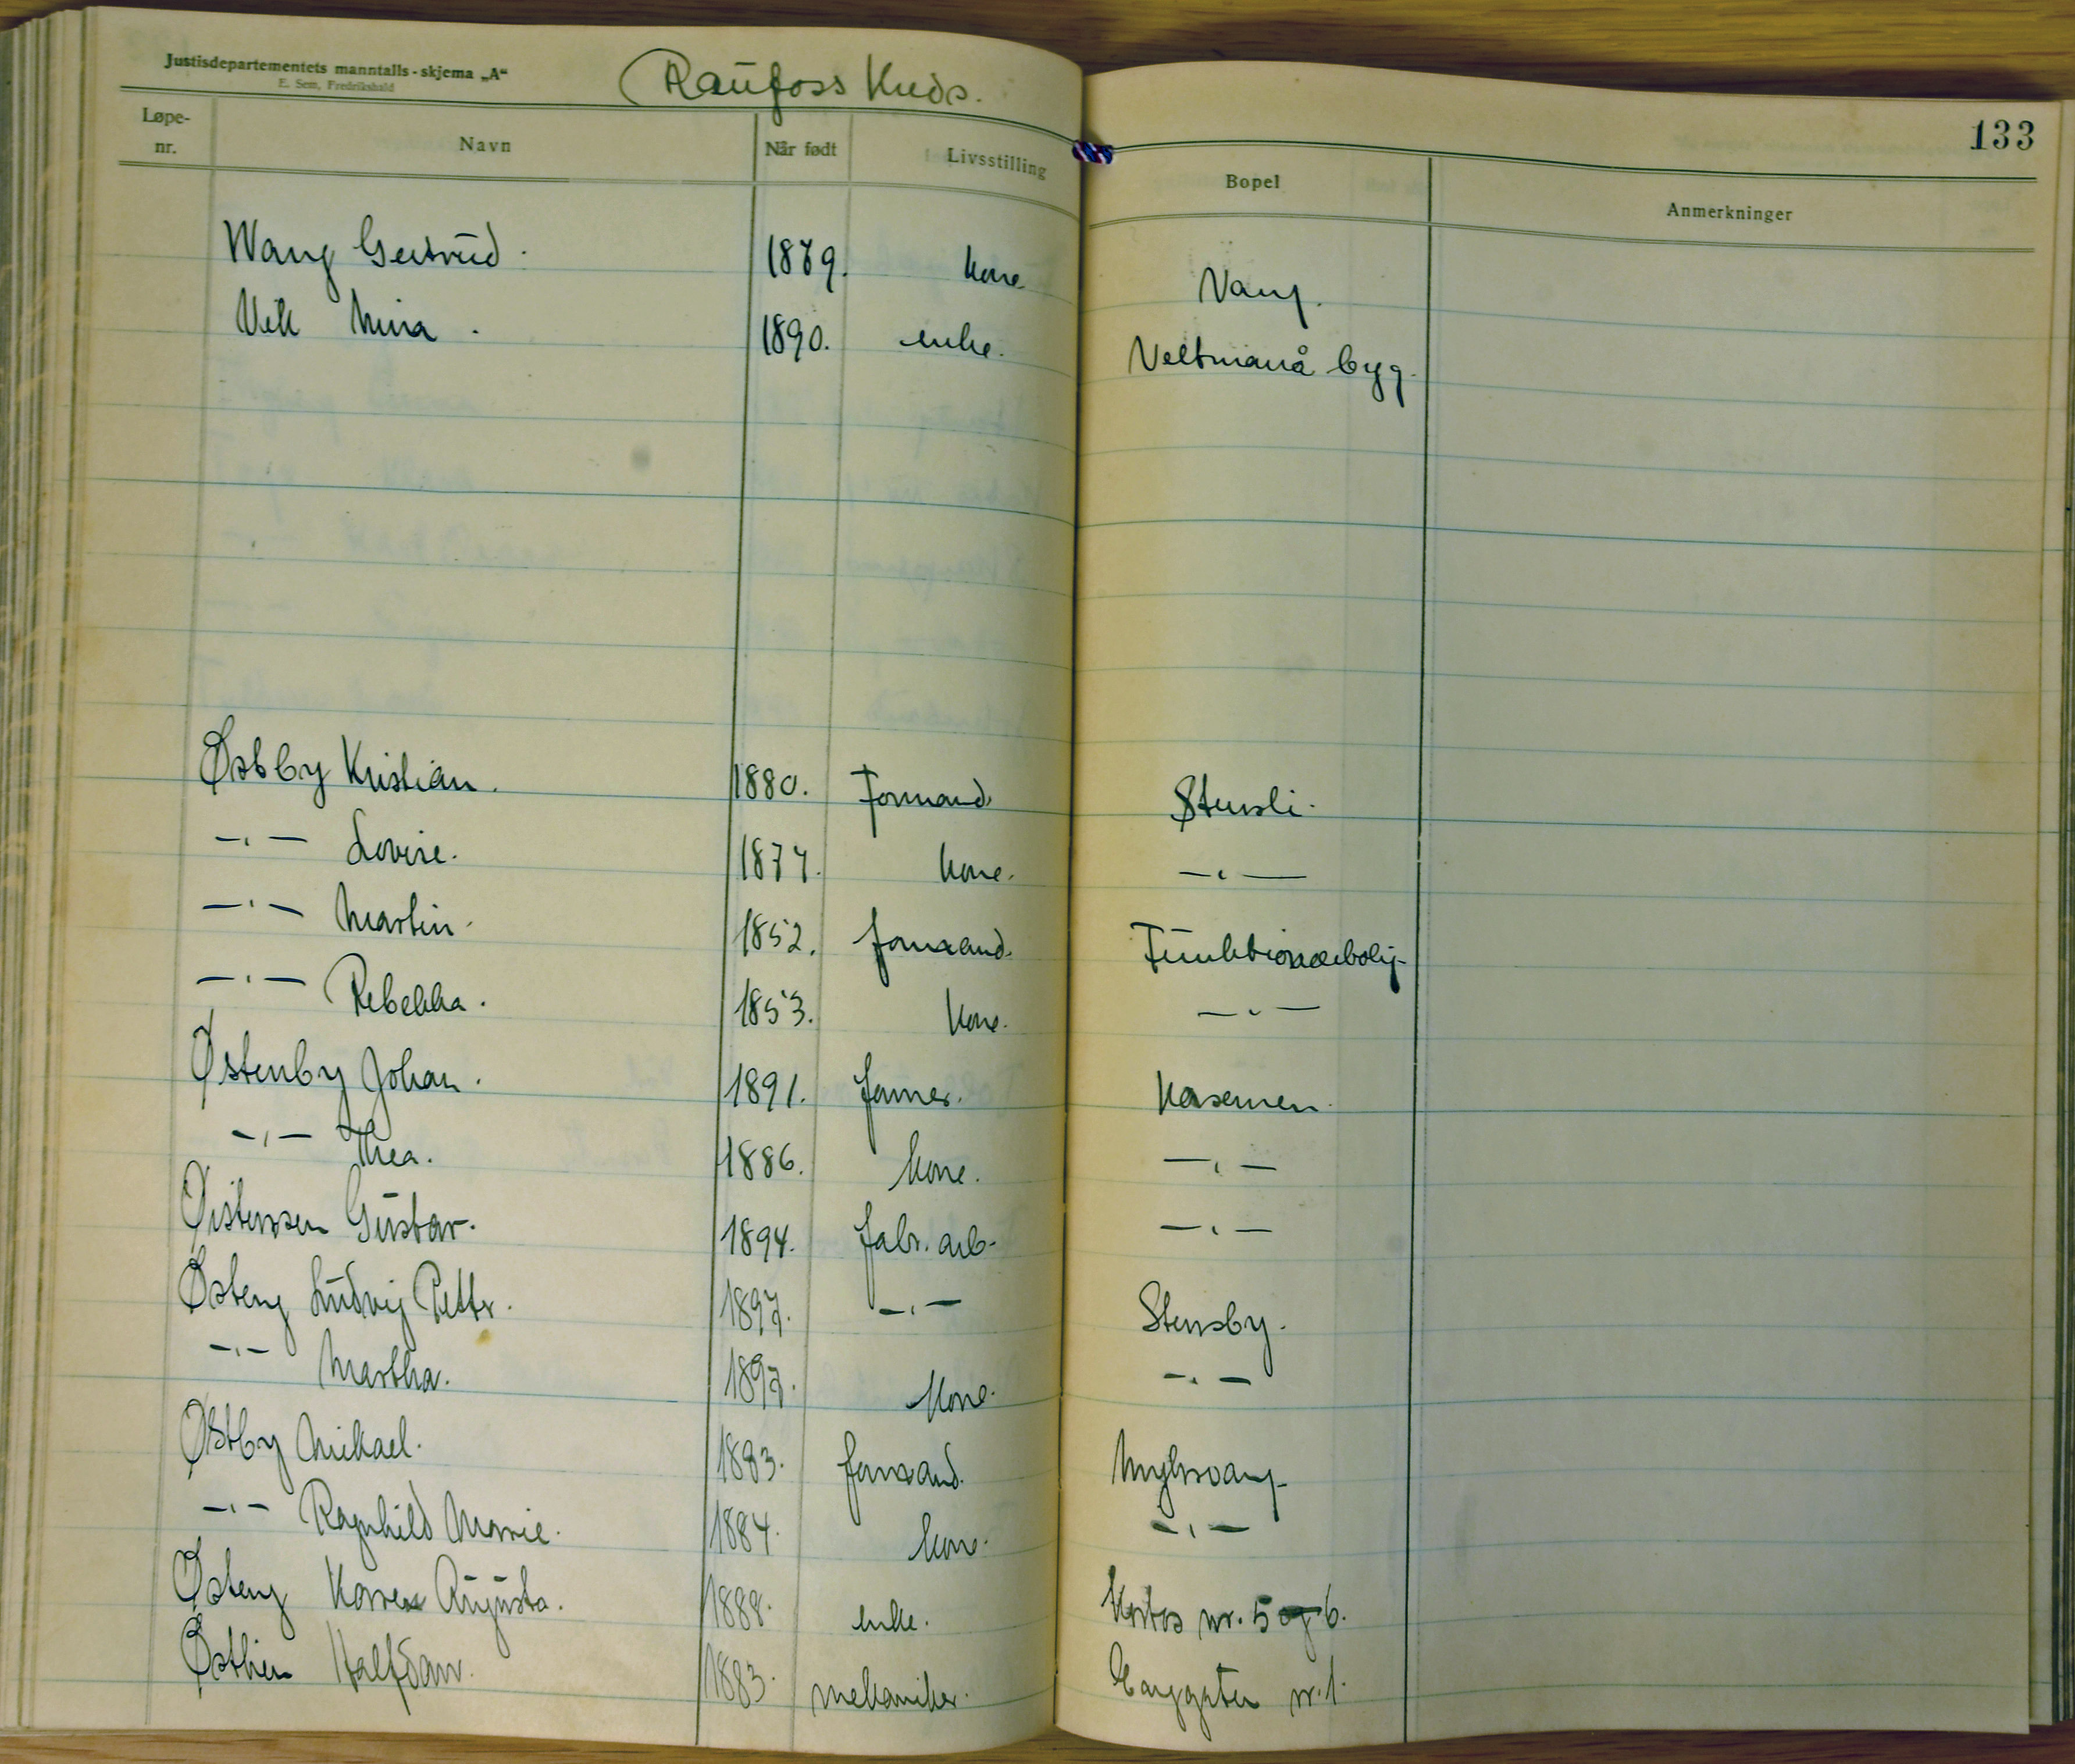 Justisdepartementets manntalls-skjema „A“
E. Sem, Fredrikshald
Raufoss Kreds.
133
Løpe-nr. Navn Når født Livsstilling Bopel Anmerkninger
Wang Gertrud. 1879. kone. Vang.
Vik Mina. 1890. enke. Veltmanå byg.
Østby Kristian. 1880. Formand. Stensli.
—"— Lovise. 1877. kone. —"—
—"— Martin. 1852. formand. Funktionærbolig
—"— Rebekka. 1853. kone. —"—
Østenby Johan. 1891. former. Kasernen.
—"— Thea. 1886. kone. —"—
Østensen Gustav. 1894. fabr. arb. —"—
Østeng Ludvig Petter. 1897. —"— Stensby.
—"— Martha. 1897. kone. —"—
Østby Mikael. 1883. formand. Myhrvang
—"— Ragnhild Marie. 1884. kone. —"—
Østeng Karen Augusta. 1888. enke. nr. 5 og 6.
Østlien Halfdan. 1883. mekaniker. nr. 1.